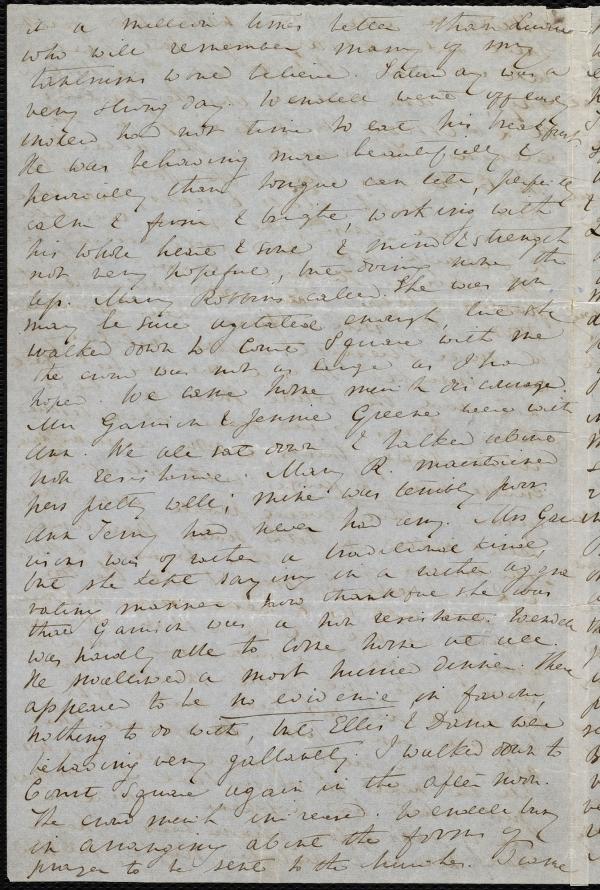 it a million times better than
who will remember many of my
tantrums would believe. Saturday was a
very strong day. Wendell went off early
indeed had not time to eat his breakfast
He was behaving more beautifully &
heroically than tongue can tell, perfectly
calm & firm & bright, working with
his whole heart & soul & mind & strength
not very hopeful, but doing none the
less. Mary Robbins called. She was you
may be sure agitated enough, but she
walked down to Court Square with me
the crowd was not as large as I had
hoped. We came home much discouraged
Mrs Garrison & Jennie Greene were with
Ann. We all sat down & talked about
non resistance. Mary R. maintained
hers pretty well; mine was terribly poor
Ann Terry had never had any. Mrs Gar
risons was of rather a traditional kind,
but she kept saying in a rather aggra
vating manner how thankful she was
that Garrison was a non resistant. Wendell
was hardly able to come home at all
He swallowed a most hurried dinner. There
appeared to be no evidence in favour,
nothing to do with, but Ellis & Dana were
behaving very gallantly. I walked down to
Court Square again in the after noon.
The crowd much increased. Wendell busy
in arranging about the forms of
prayer to be sent to the churches. I came